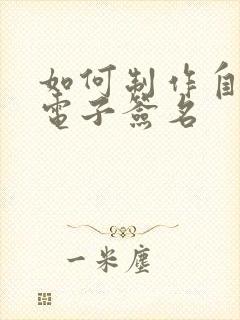 如何制作自
電子簽名
一米塵